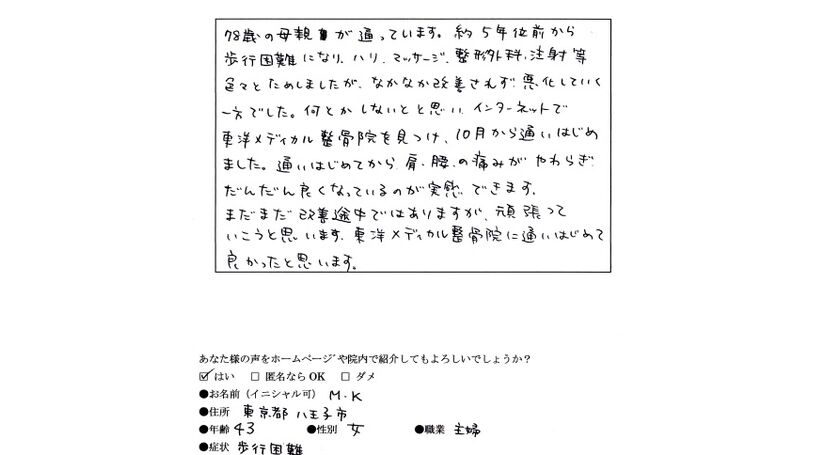 78歳の母親が通っています。約5年位前から
歩行困難になり、ハリ、マッサージ、整形外科、注射等
色々とためしましたが、なかなか改善されず、悪化していく
一方でした。何とかしないとと思い、インターネットで
東洋メディカル整骨院を見つけ、10月から通いはじめ
ました。通いはじめてから、肩、腰、の痛みがやわらぎ
だんだん良くなっているのが実感できます。
まだまだ改善途中ではありますが、頑張って
いこうと思います。東洋メディカル整骨院に通いはじめて
良かったと思います。
あなた様の声をホームページや院内で紹介してもよろしいでしょうか?
☑はい □ 匿名ならOK □ ダメ
●お名前(イニシャル可) M.K
●住所 東京都八王子市
●年齢 43 ●性別 女 ●職業 主婦
●症状 歩行困難